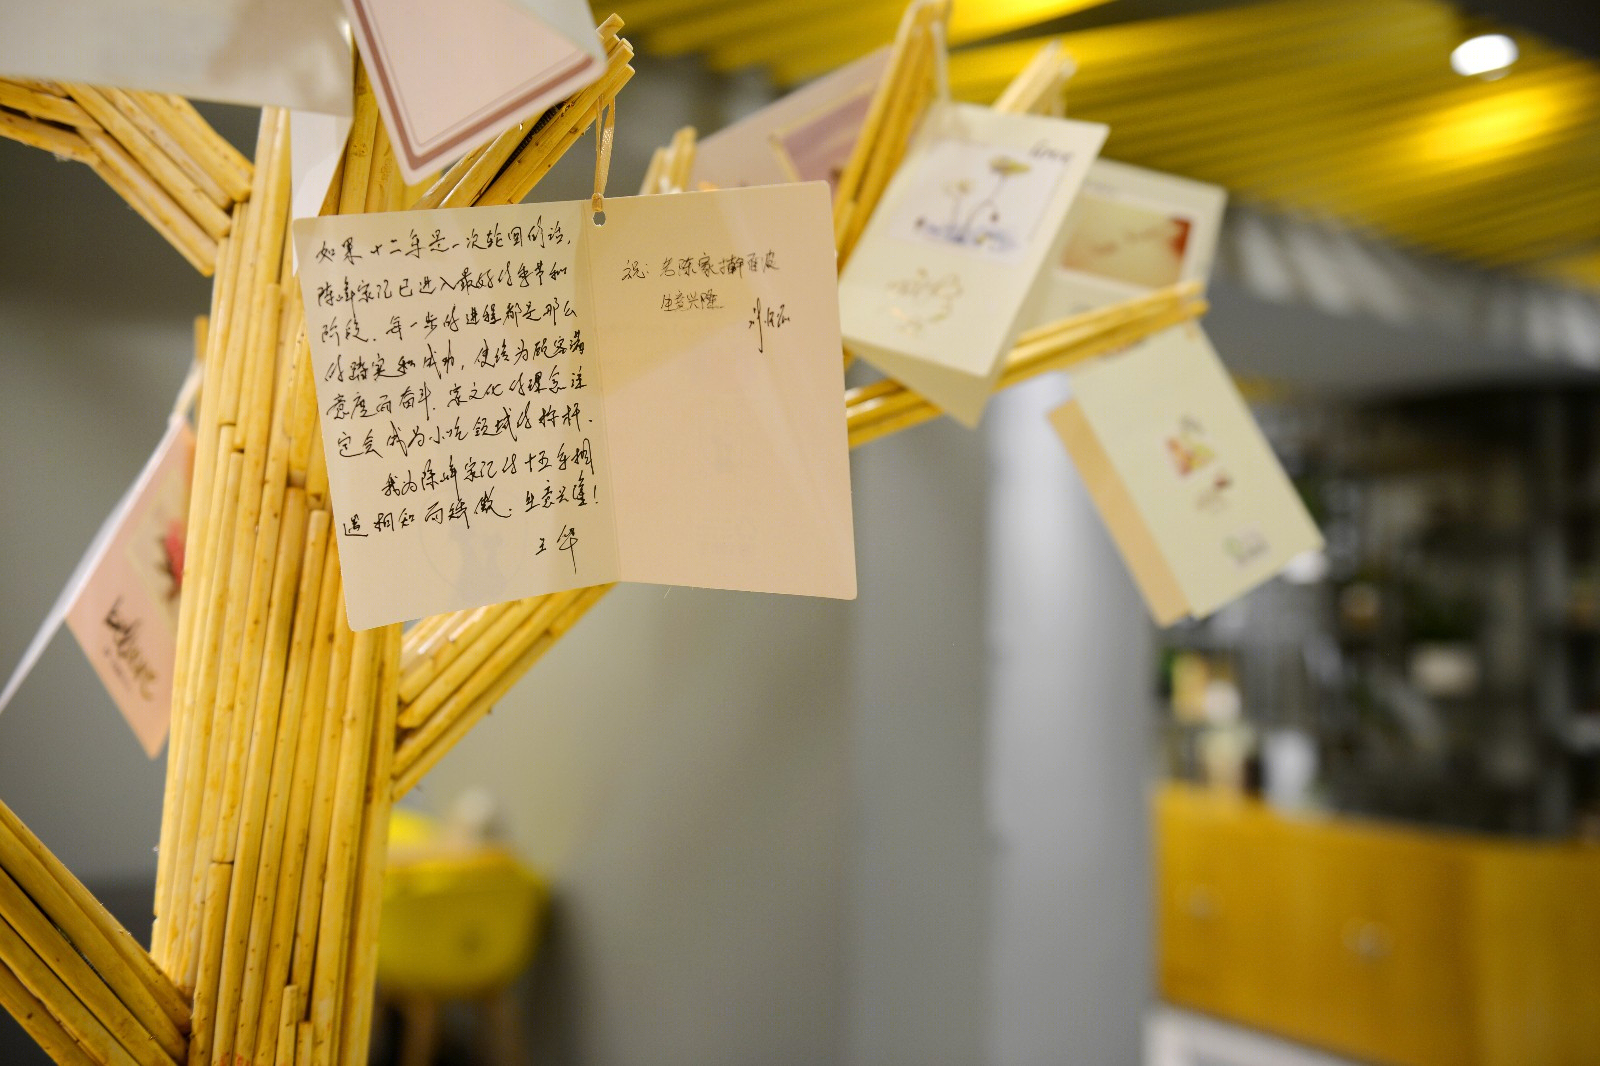 如果十二年是一次轮回的话,
陈峰家记已进入最好的季节和
阶段.每一步的进程都是那么
的踏实和成功,使终为顾客满
意度而奋斗.家文化的理念注
定会成为小吃领域的标杆.
我为陈峰家记的十五年相
遇相知而骄傲.生意兴隆!
王华
祝:老陈家擀面皮
生意兴隆
believe